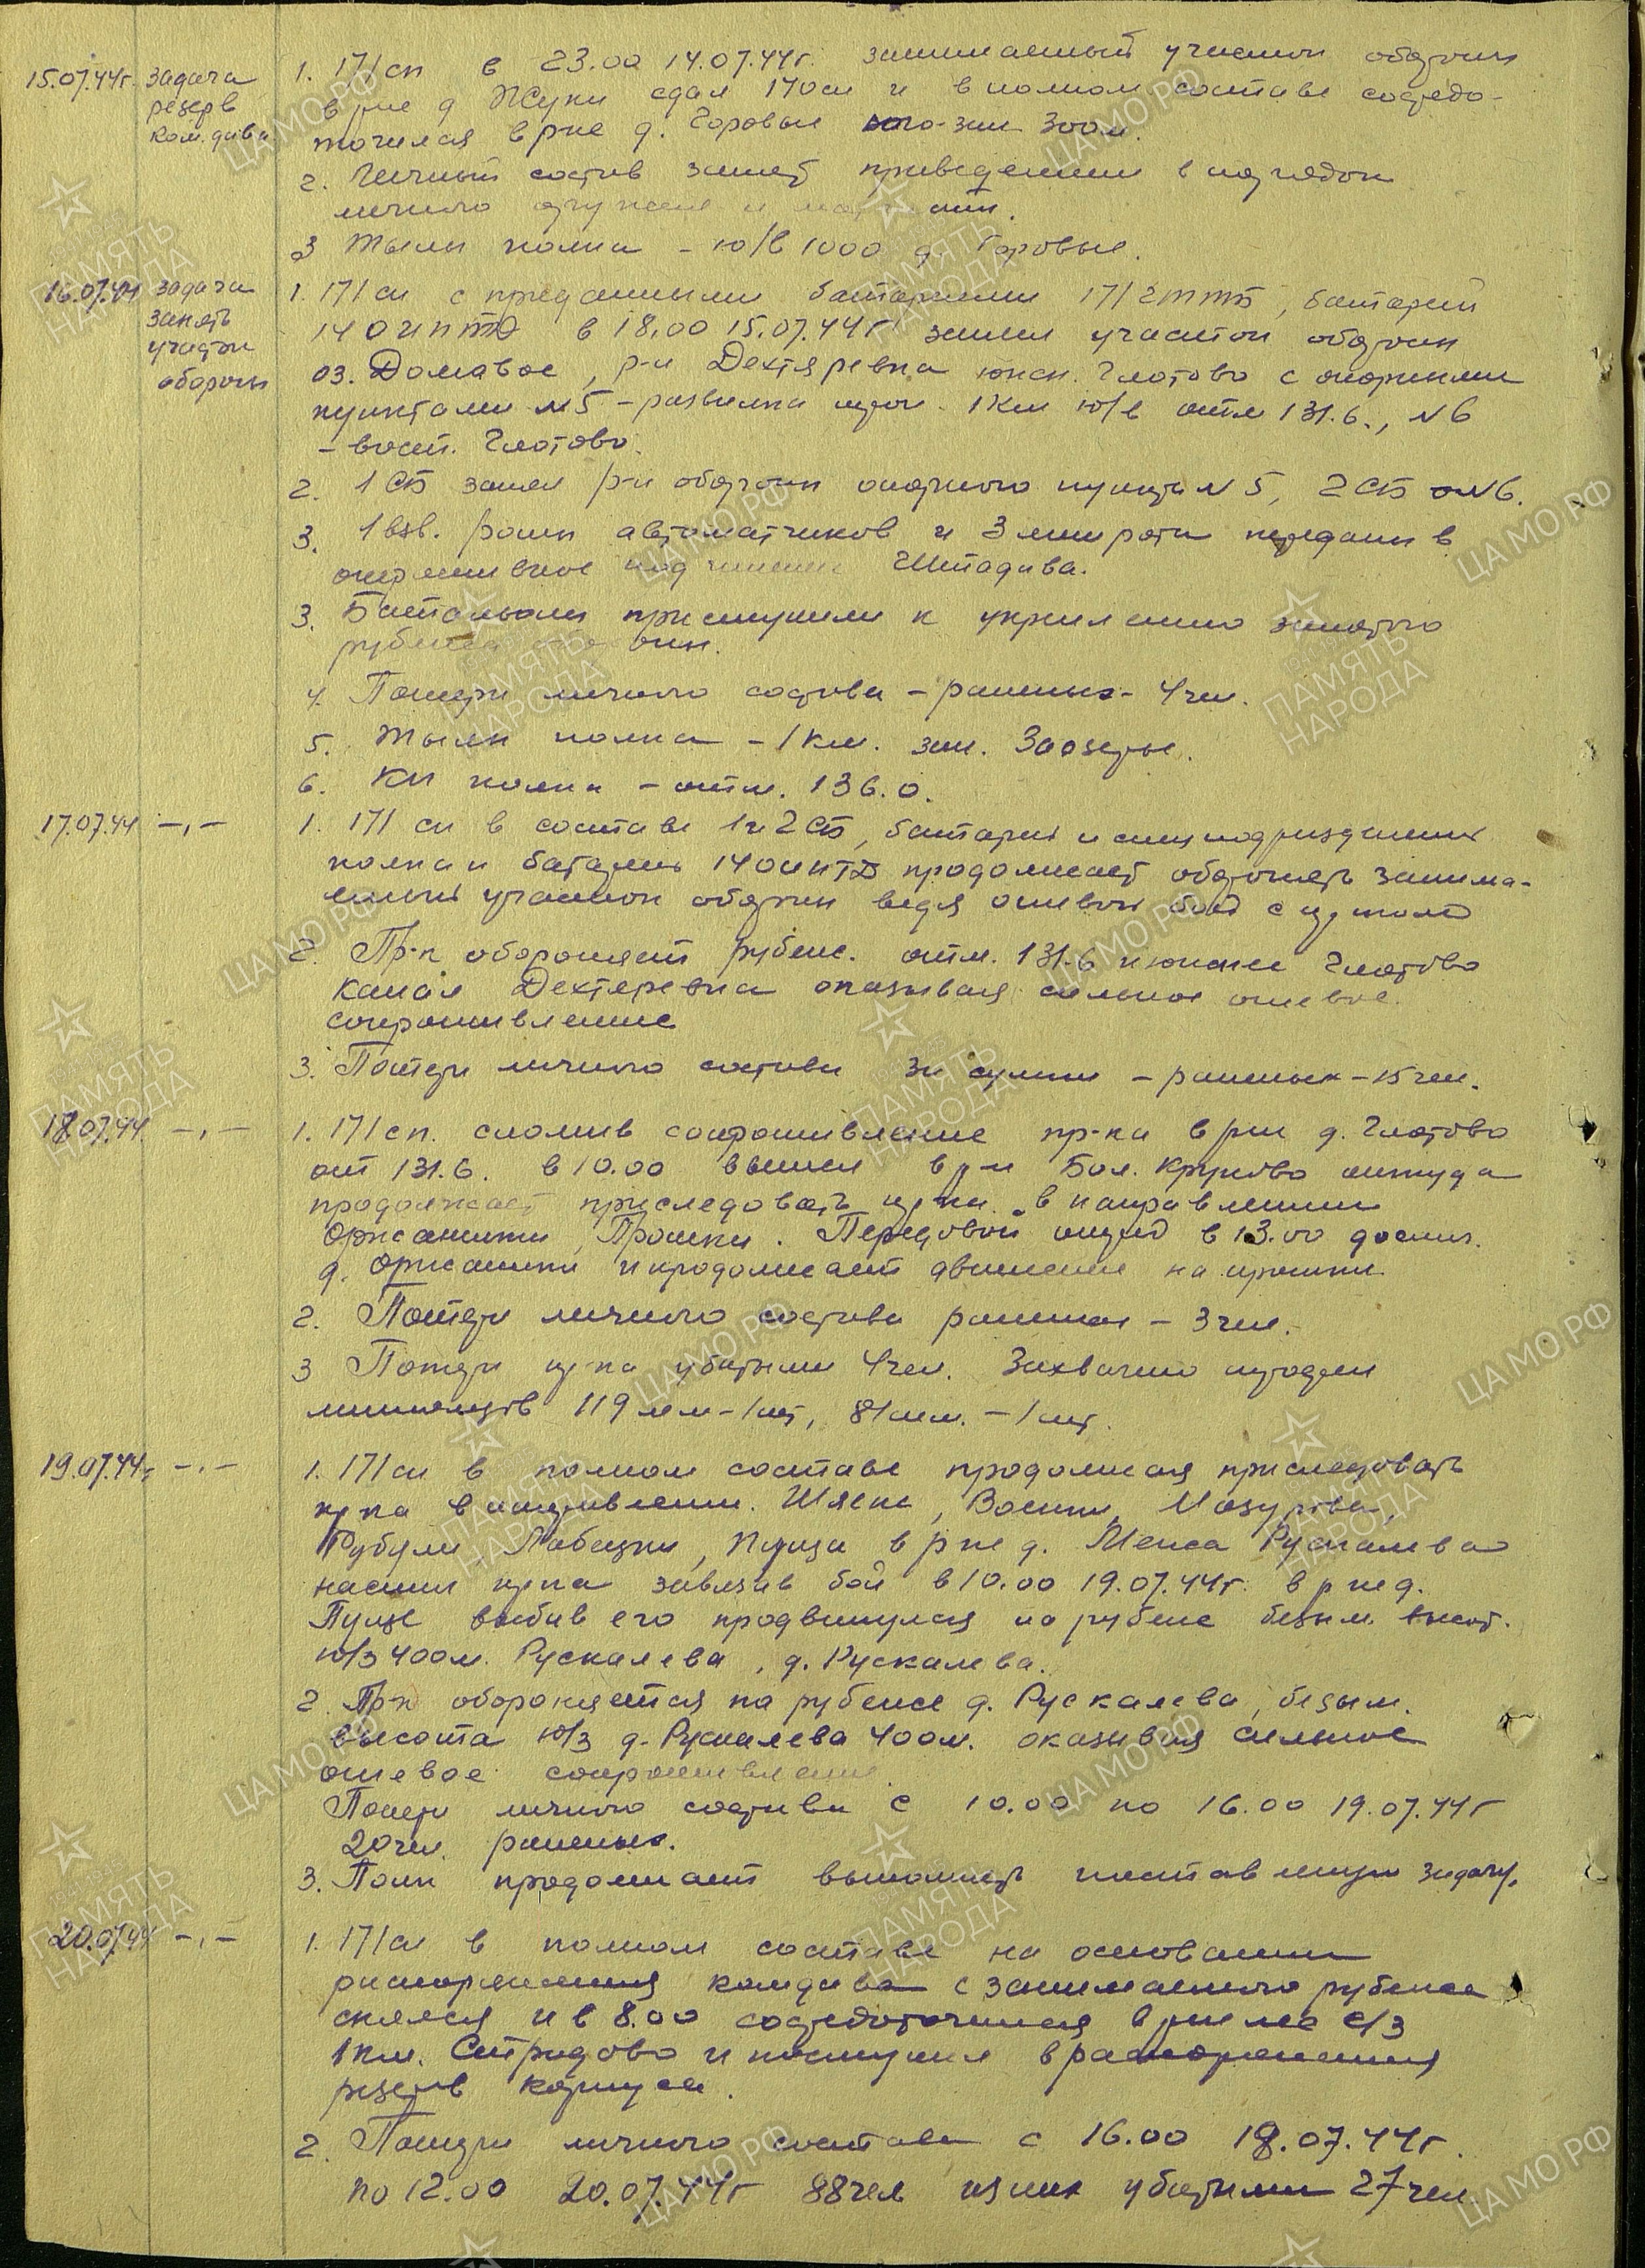 15.07.44г. задача резерв ком.дива
1. 171 сп в 23.00 14.07.44г. занимаемый участок обороны
в р-не д. Жуки сдал 170 сп и в полном составе сосредо-
точился в р-не д. Горовые юго-зап 300 м.
2. Личный состав занят приведением в порядок
личного оружия и
3 Тылы полка - ю/в 1000 д. Горовые.
16.07.44 задача занять участок обороны
1. 171 сп с приданными батареями 171, батарей
140 иптд в 18.00 15.07.44г занял участок обороны
оз. Домавое, р-н Дехтяревка южн. Глотово с опорными
пунктами №5 - развилка дорог. 1 км ю/в отм 131.6., №6
- вост. Глотово.
2. 1 СБ занял р-н обороны опорного пункта №5, 2 СБ - №6.
3. 1 взв. роты автоматчиков и 3 мин рота переданы в
оперативное подчинение Штадива.
3. Батальоны приступили к укреплению занятого
рубежа обороны.
4. Потери личного состава - раненых - 4 чел.
5. Тылы полка - 1 км. зап. Заозерье.
6. КП полка - отм. 136.0.
17.07.44 -,-
1. 171 сп в составе 1 и 2 СБ, батарей и спецподразделений
полка и батареи 140 иптд продолжает оборонять занима-
емый участок обороны ведя огневой бой с пр-ком
2. Пр-к обороняет рубеж. отм. 131.6 и южнее Глотово
канал Дехтяревка оказывая сильное огневое
сопротивление
3. Потери личного состава за сутки - раненых - 15 чел.
18.07.44. -,-
1. 171 сп. сломив сопротивление пр-ка в р-не д. Глотово
отм 131.6. в 10.00 вышел в р-н Бол. Крупово откуда
продолжает приследовать пр-ка в направлении
Оржаники, Прошки. Передовой отряд в 13.00 достиг.
д. Оржаники и продолжает движение на прошки.
2. Потери личного состава раненых - 3 чел.
3 Потери пр-ка убитыми 4 чел. Захвачено трофеи
минометов 119 мм - 1 шт, 81 мм. - 1 шт.
19.07.44г -,-
1. 171 сп в полном составе продолжая приследовать
пр-ка в направлении. Шляпы, Мазурова,
Рубули, Лабецки, Пунца в р-не д. Рускалева
настиг пр-ка завязав бой в 10.00 19.07.44г. в р-не д.
Пунце выбив его продвинулся на рубеж безым. высот.
ю/з 400 м. Рускалева, д. Рускалева.
2. Пр-к обороняется на рубеже д. Рускалева, безым.
высота ю/з д. Рускалева 400 м. оказывая сильное
огневое сопротивление.
Потери личного состава с 10.00 по 16.00 19.07.44г
20 чел. раненых.
3. Полк продолжает выполнять поставленную задачу.
20.07.44 -,-
1. 171 сп в полном составе на основании
распоряжения комдива с занимаемого рубежа
снялся и в 8.00 сосредоточился в р-не лес с/з
1 км. Стридово и поступил в распоряжения
резерв корпуса.
2. Потери личного состава с 16.00 19.07.44г.
по 12.00 20.07.44г 88 чел из них убитыми 27 чел.
ЦАМО.РФ
ПАМЯТЬ НАРОДА